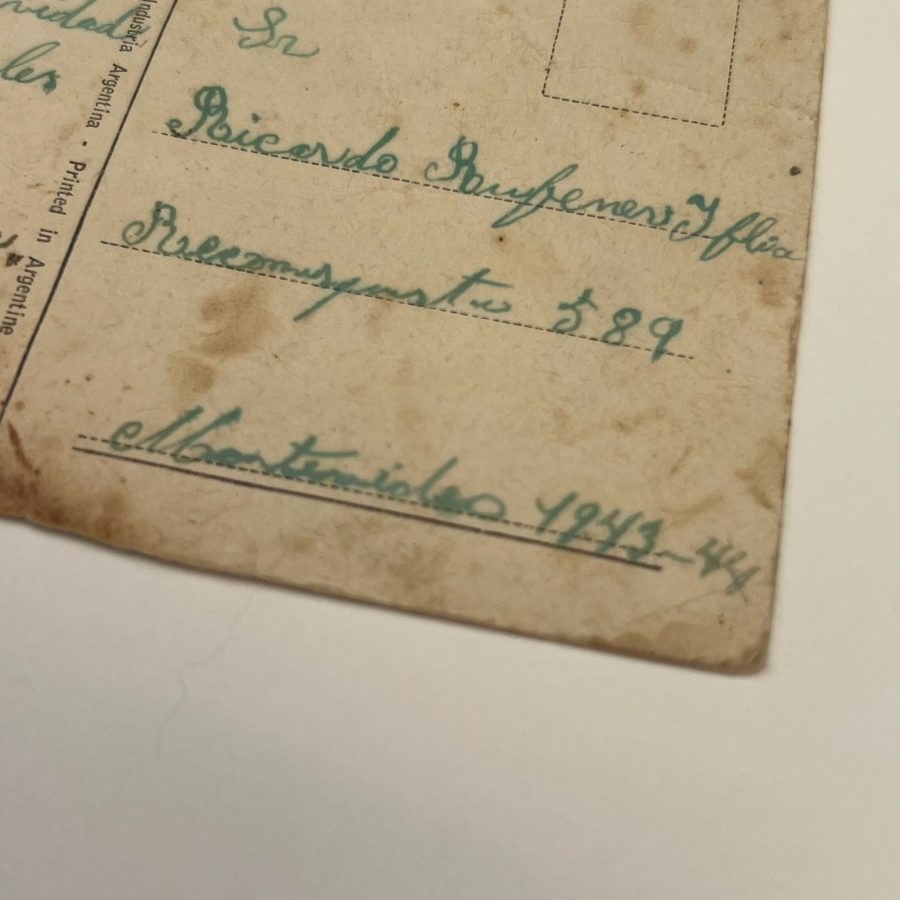 vidad
les
Industria Argentina • Printed in Argentine
Sr
Ricardo Rufener y flia
589
Montevideo 1943-44